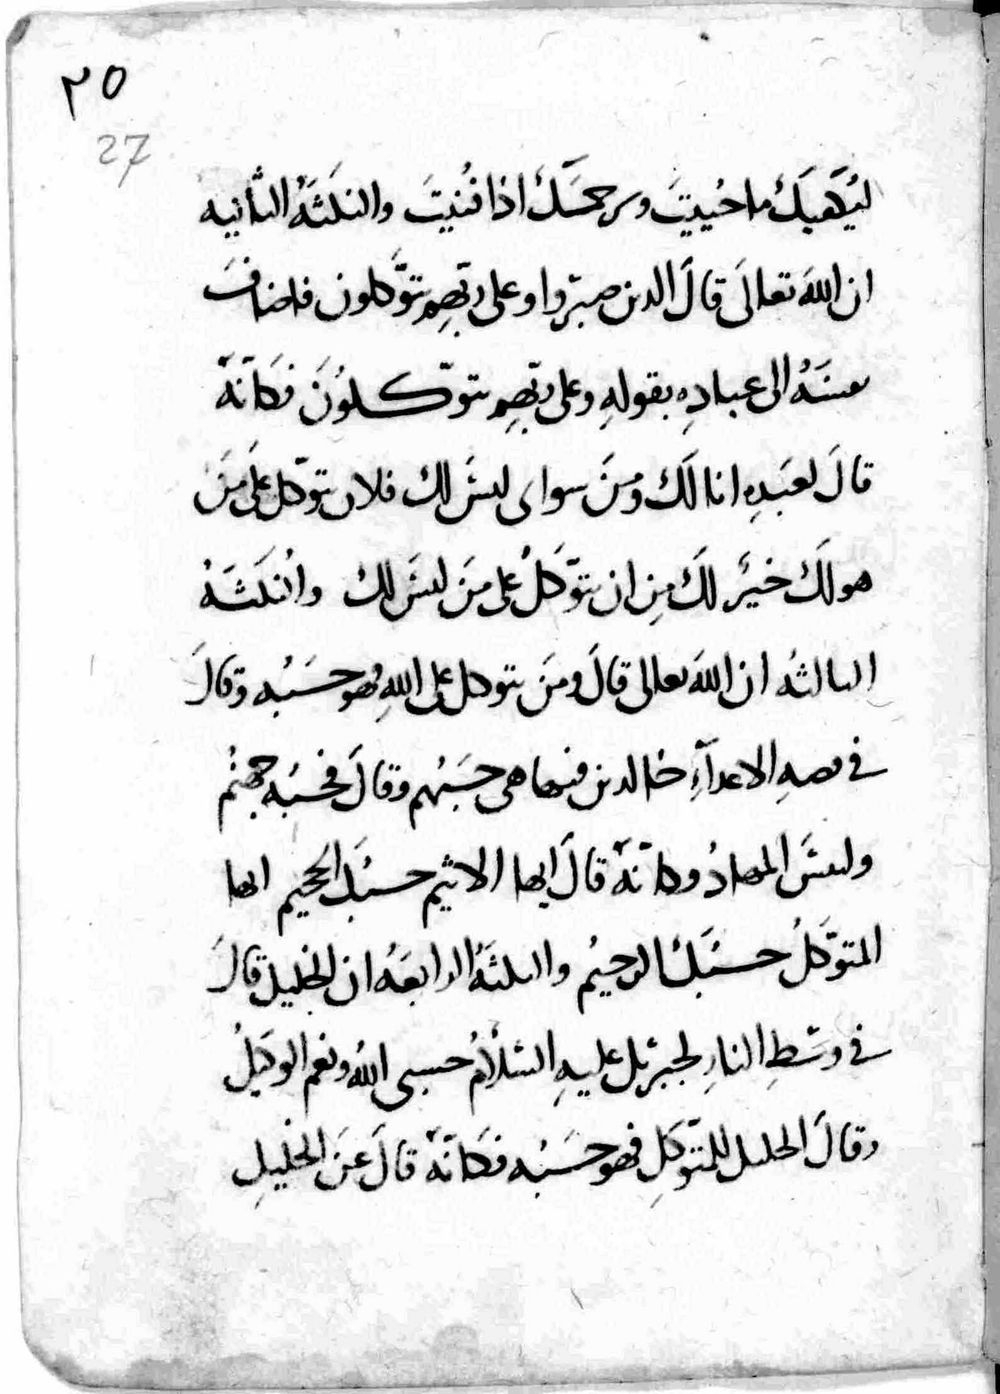 ٢٥
27
ليهبك ما حييت ويرحمك اذا فنيت والنكتة الثانيه
ان الله تعالى قال الذين صبروا وعلى ربهم يتوكلون فاضاف
نفسه الى عباده بقوله وعلى ربهم يتوكلون فكانه
قال لعبده انا لك ومن سواى ليس لك فلان تتوكل على من
هو لك خير لك من ان تتوكل على من ليس لك والنكتة
الثالثه ان الله تعالى قال ومن يتوكل على الله فهو حسبه وقال
فى صفه الاعدآء خالدين فيها هى حسبهم وقال فحسبه جهنم
ولبئس المهاد وكانه قال ايها الاثيم حسبك الجحيم ايها
المتوكل حسبك الرحيم والنكتة الرابعة ان الخليل قال
فى وسط النار لجبرئل عليه السلام حسبى الله ونعم الوكيل
وقال الجليل للمتوكل فهو حسبه فكانه قال عن الخليل